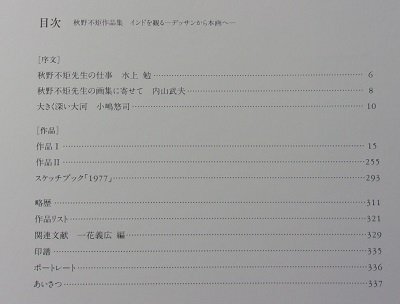 目次 秋野不矩作品集 インドを観る―デッサンから本画へ―
[序文]
秋野不矩先生の仕事 水上 勉 6
秋野不矩先生の画集に寄せて 内山武夫 8
大きく深い大河 小嶋悠司 10
[作品]
作品Ⅰ 15
作品Ⅱ 255
スケッチブック「1977」 293
略歴 311
作品リスト 321
関連文献 一花義広 編 329
印譜 335
ポートレート 336
あいさつ 337